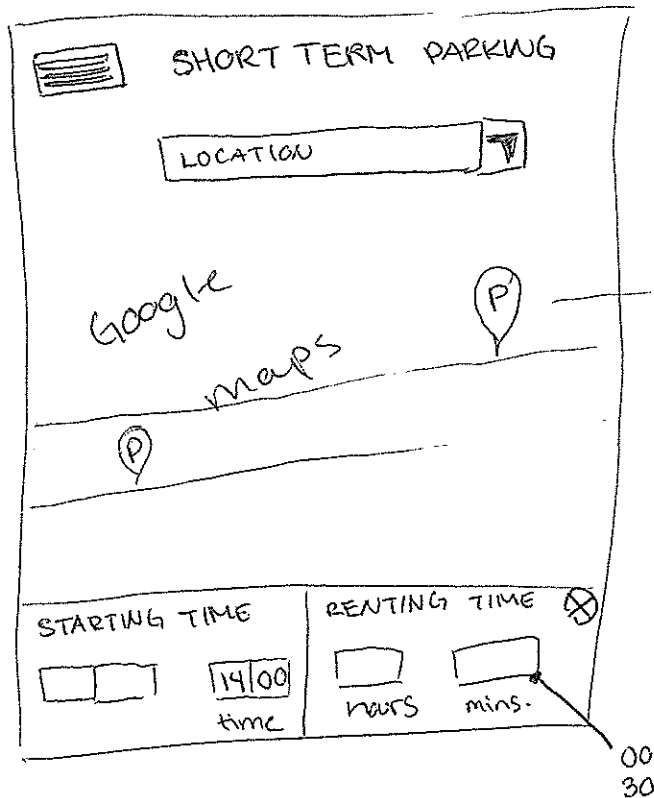 SHORT TERM PARKING
LOCATION
Google
maps
P
P
STARTING TIME
RENTING TIME
14 00
time
hours
mins.
00
30